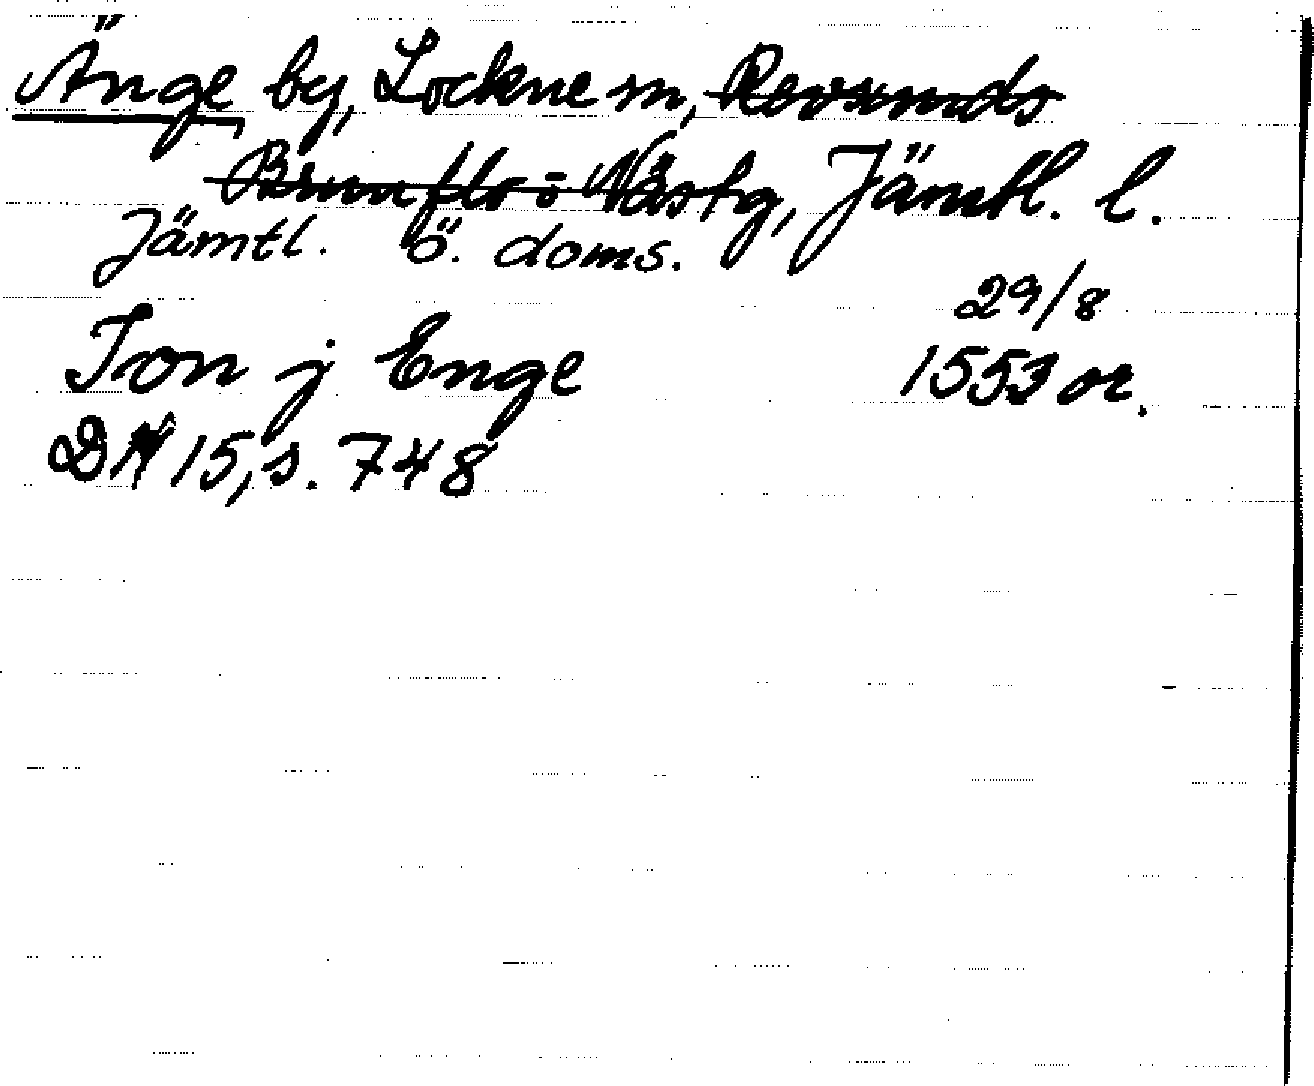 Änge by, Lockne sn, Revsunds
Brunflo o Näs tg, Jämtl. l.
Jämtl. ö. doms.
29/8
Jon j Enge 1553 or.
DN 15, s. 748